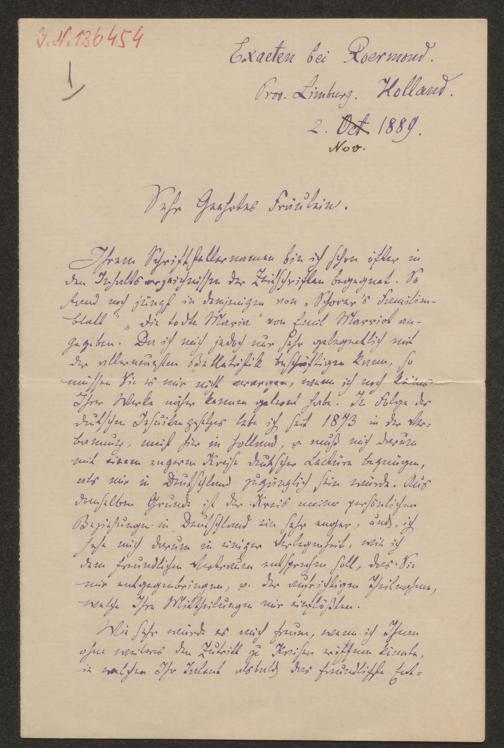 J.N. 136454
1
Exaeten bei Roermond.
Prov. Limburg. Holland.
2. Oct 1889.
Nov.
Sehr Geehrtes Fräulein.
Ihrem Schriftstellernamen bin ich schon öfter in
den Inhaltsverzeichnissen der Zeitschriften begegnet. So
fand noch jüngst in demjenigen von „Schorer's Familien-
blatt" „die todte Maria" von Emil Marriot an-
gegeben. Da ich mich jedoch nur sehr gelegentlich mit
der allerneuesten Belletristik beschäftigen kann, so
müssen Sie es mir nicht verargen, wenn ich noch keines
Ihrer Werke näher kennen gelernt habe. In Folge des
deutschen Jesuitengesetzes lebe ich seit 1873 in der Ver-
bannung, meist hier in Holland, u. muß mich darum
mit einem engeren Kreise deutscher Lectüre begnügen,
als mir in Deutschland zugänglich sein würde. Aus
demselben Grunde ist der Kreis meiner persönlichen
Beziehungen in Deutschland ein sehr enger, und ich
sehe mich darum in einiger Verlegenheit, wie ich
dem freundlichen Vertrauen entsprechen soll, das Sie
mir entgegenbringen, u. der aufrichtigen Theilnahme,
welche Ihre Mittheilungen mir einflößten.
Wie sehr würde es mich freuen, wenn ich Ihnen
ohne weiteres den Zutritt zu Kreisen eröffnen könnte,
in welchen Ihr Talent alsbald das freundlichste Ent-